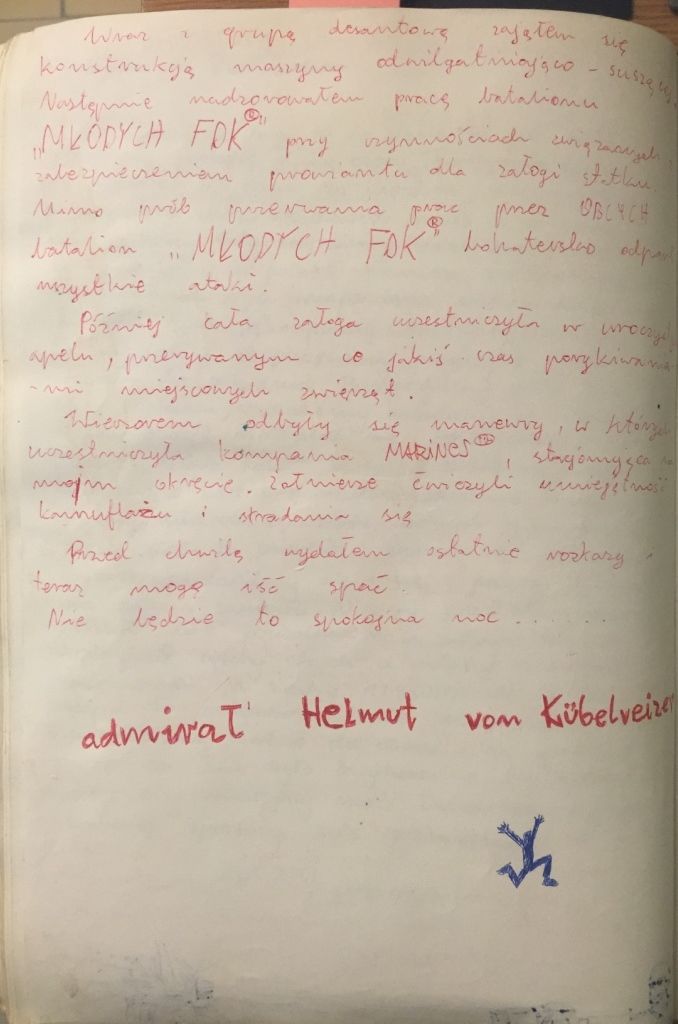 Wraz z grupą desantową zająłem się
konstrukcją maszyny odwilgatniająco - suszącej.
Następnie nadzorowałem pracę batalionu
„MŁODYCH FDK®" przy czynnościach związanych z
zabezpieczeniem prowiantu dla załogi statku.
Mimo prób przerwania prac przez OBCYCH
batalion „MŁODYCH FDK®" bohatersko odparł
wszystkie ataki.
Później cała załoga uczestniczyła w uroczystym
apelu, przerywanym co jakiś czas porykiwania-
-mi miejscowych zwierząt.
Wieczorem odbyły się manewry, w których
uczestniczyła kompania MARINES, stacjonująca na
mojm okręcie. Żołnierze ćwiczyli umiejętność
kamuflażu i skradania się
Przed chwilą wydałem ostatnie rozkazy i
teraz mogę iść spać.
Nie będzie to spokojna noc .......
admirał Helmut von Kübelveizer